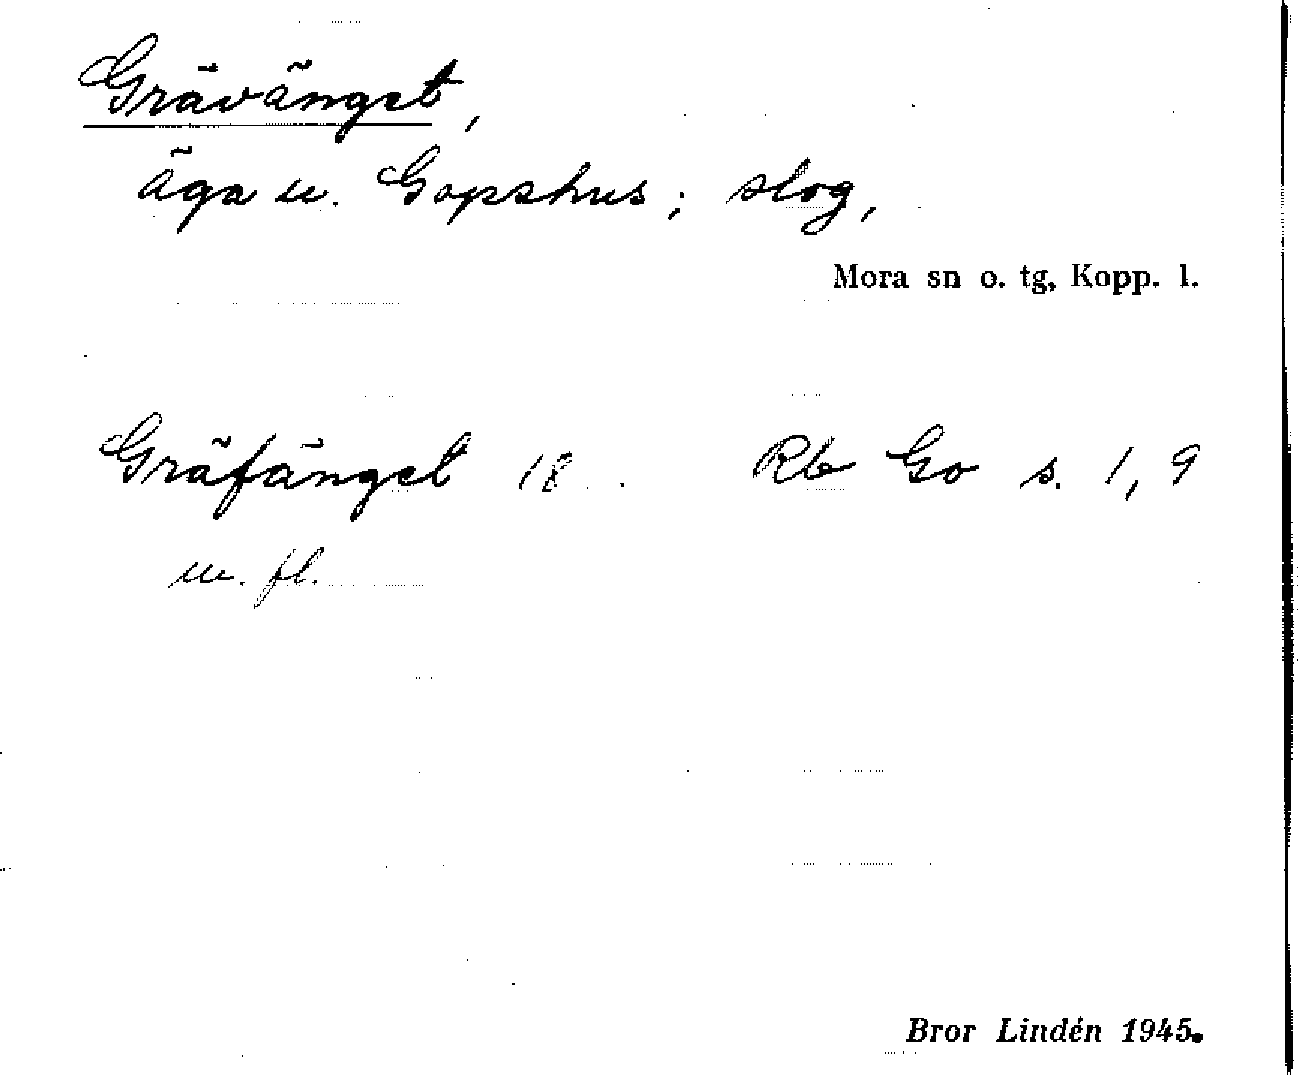 Grävänget,
äga u. Gopshus; slog,
Mora sn o. tg, Kopp. l.
Gräfänget 18 . . Rb Go s. 1, 9
m. fl.
Bror Lindén 1945.